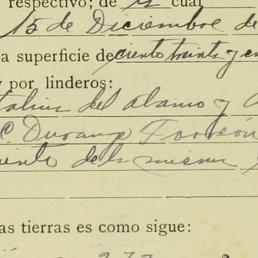 respectivo; de la cual
15 de Diciembre de
a superficie de ciento treinta y
y por linderos:
del alamo y
C. Durango Torreón
de la misma
as tierras es como sigue: